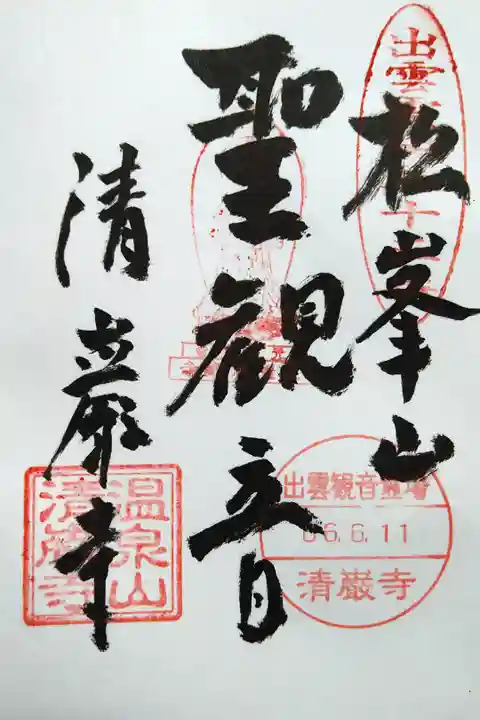 松峯山
聖観音
清巌寺
出雲
十
出雲観音霊場
06.6.11
清巌寺
温泉山
清巌寺